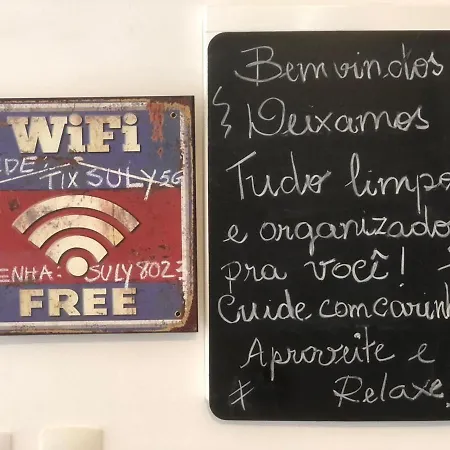 WiFi
EDE:
TIX SULY 5G
ENHA: SULY 8023
FREE
Bemvindos
Deixamos
Tudo limpo
e organizado
pra você!
Cuide com carinh
Aproveite e
# Relaxe